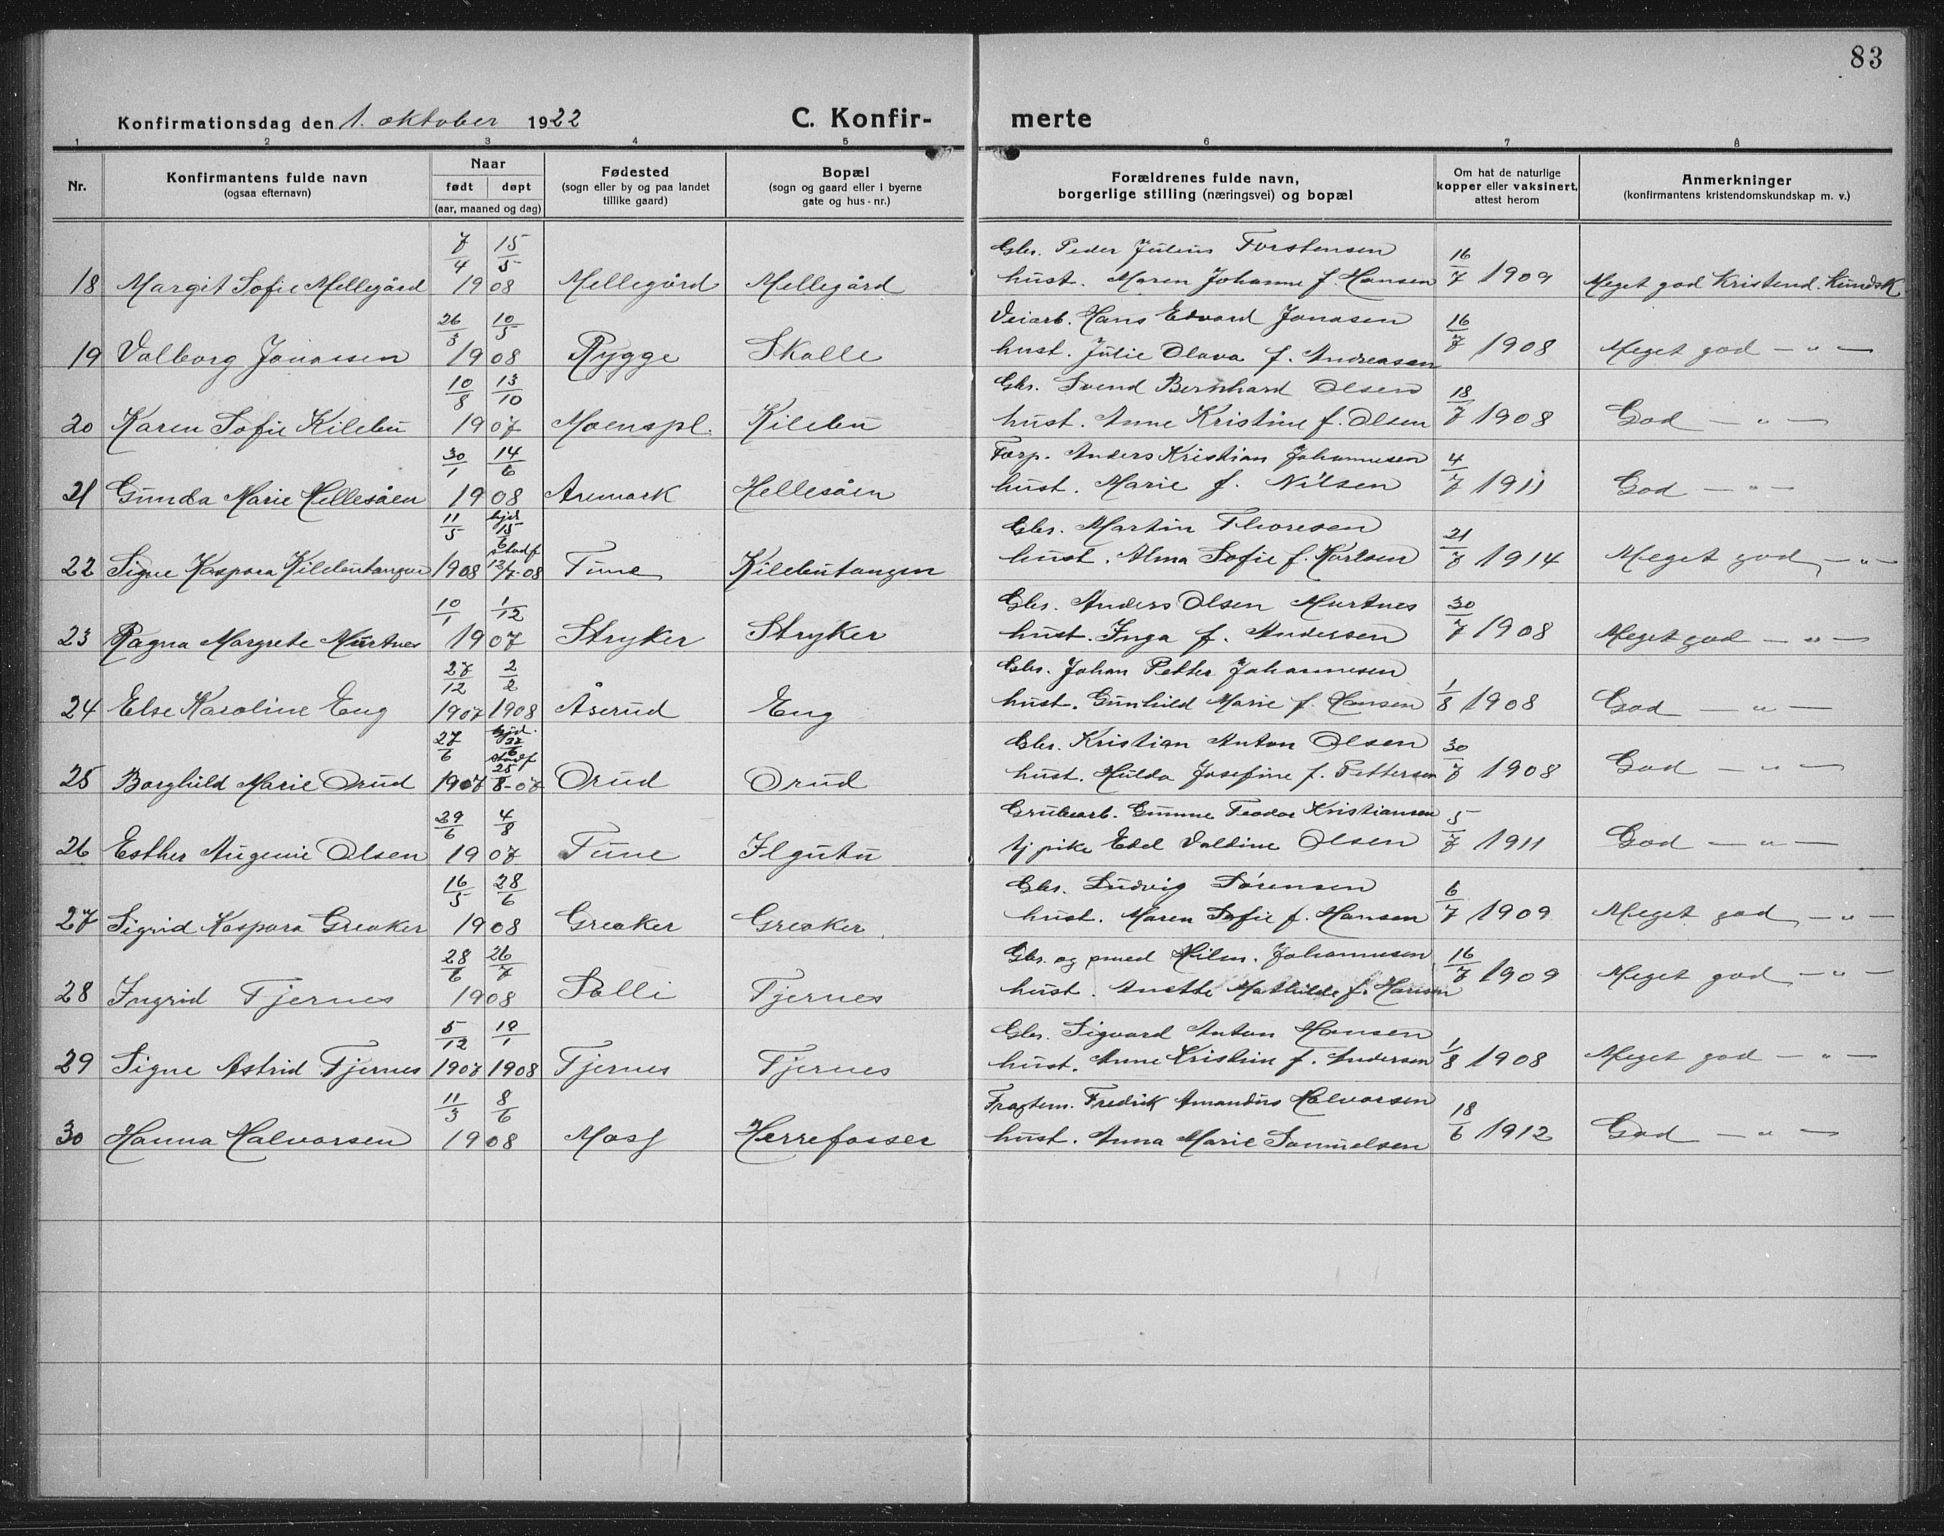 83
Konfirmationsdag den 1. oktober 1922 C. Konfir- merte
1 2 3 4 5 6 7 8
Nr. Konfirmantens fulde navn (ogsaa efternavn) Naar født døpt (aar, maaned og dag) Fødested (sogn eller by og paa landet tillike gaard) Bopæl (sogn og gaard eller i byerne gate og hus-nr.) Forældrenes fulde navn, borgerlige stilling (næringsvei) og bopæl Om hat de naturlige kopper eller vaksinert, attest herom Anmerkninger (konfirmantens kristendomskundskap m. v.)
7/4 15/5 Gbr. Peder Julius Torstensen
18 Margit Sofie Mellegård 1908 Mellegård Mellegård hust. Maren Johanne f. Hansen 16/7 1909 Meget god Kristend. Kundsk
26/3 10/5 Veiarb. Hans Edvard Jonasen
19 Valborg Jonassen 1908 Rygge Skalle hust. Julie Olava f. Andreasen 16/7 1908 Meget god — " —
10/8 13/10 Gbr. Svend Bernhard Olsen
20 Karen Sofie Kilebu 1907 Moenspl. Kilebu hust. Anne Kristine f. Olsen 18/7 1908 God — " —
30/1 14/6 Forp. Anders Kristian Johannesen
21 Gunda Marie Hellesåen 1908 Aremark Hellesåen hust. Marie f. Nilsen 4/7 1911 God — " —
11/5 hjd 15/6 stadf Gbr. Martin Thoresen
22 Signe Kaspara Kilebutangen 1908 12/7-08 Tune Kilebutangen hust. Alma Sofie f. Karlsen 21/7 1914 Meget god — " —
10/1 1/12 Gbr. Anders Olsen Murtnes
23 Ragna Margrete Murtnes 1907 Stryker Stryker hust. Inga f. Andersen 30/7 1908 Meget god — " —
27/12 2/2 Gbr. Johan Petter Johannesen
24 Else Karoline Eng 1907 1908 Åserud Eng hust. Gunhild Marie f. Hansen 1/8 1908 God — " —
27/6 hjd. 27/6 stadf Gbr. Kristian Anton Olsen
25 Borghild Marie Orud 1907 25/8-07 Orud Orud hust. Hulda Josefine f. Pettersen 30/7 1908 God — " —
29/6 4/8 Grubearb. Gunne Teodor Kristiansen
26 Esther Augenie Olsen 1907 Tune Ilgutu tj pike Edel Valdine Olsen 5/7 1911 God — " —
16/5 28/6 Gbr. Ludvig Sörensen
27 Sigrid Kaspara Greaker 1908 Greaker Greaker hust. Maren Sofie f. Hansen 6/7 1909 Meget god — " —
28/6 26/7 Gbr. og smed Hilm. Johannesen
28 Ingrid Tjernes 1908 Solli Tjernes hust. Anette Mathilde f. Hansen 16/7 1909 Meget god — " —
5/12 19/1 Gbr. Sigvard Anton Hansen
29 Signe Astrid Tjernes 1907 1908 Tjernes Tjernes hust. Anne Kristine f. Andersen 1/8 1908 Meget god — " —
11/3 8/6 Fragtem. Fredrik Amandus Halvorsen
30 Hanna Halvorsen 1908 Moss Herrefosser hust. Anna Marie Samuelsen 18/6 1912 God — " —